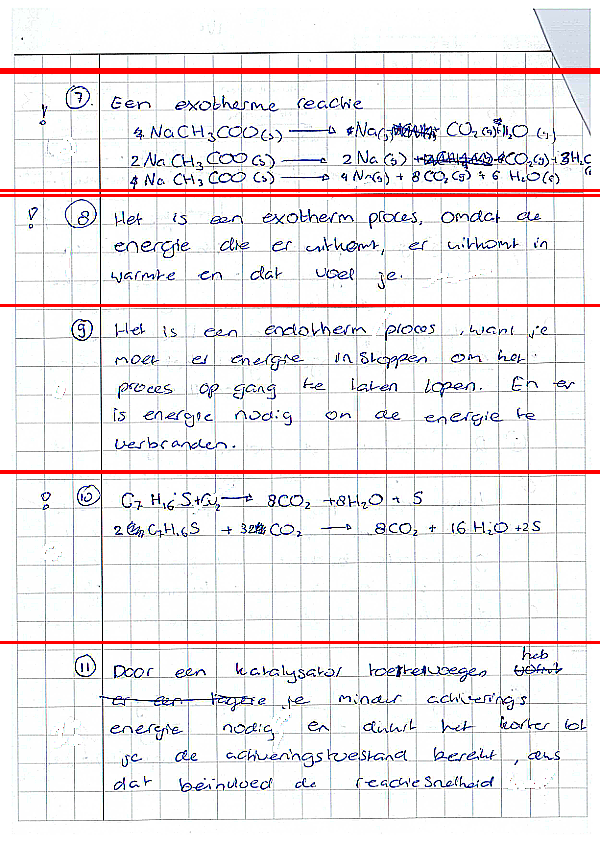 ! 7. Een exotherme reactie
4 NaCH3COO(s) → Na(s) CO2(g) + H2O (g)
2 NaCH3COO(s) → 2 Na(s) + CO2(g) + 3H2O
4 NaCH3COO(s) → 4 Na(s) + 8CO2(g) + 6 H2O(g)
! 8 Het is een exotherm proces, omdat de
energie die er uitkomt, er uitkomt in
warmte en dat voel je.
9 Het is een endotherm proces, want je
moet er energie in stoppen om het
proces op gang te laten lopen. En er
is energie nodig om de energie te
verbranden.
! 10 C7H16S+O2 → 8CO2 + 8H2O + S
2 C7H16S + 32 CO2 → 8CO2 + 16 H2O + 2S
heb
11 Door een katalysator toe te voegen
er een lagere je minder activerings
energie nodig en duurt het korter tot
je de activeringstoestand bereikt, dus
dat beïnvloed de reactiesnelheid